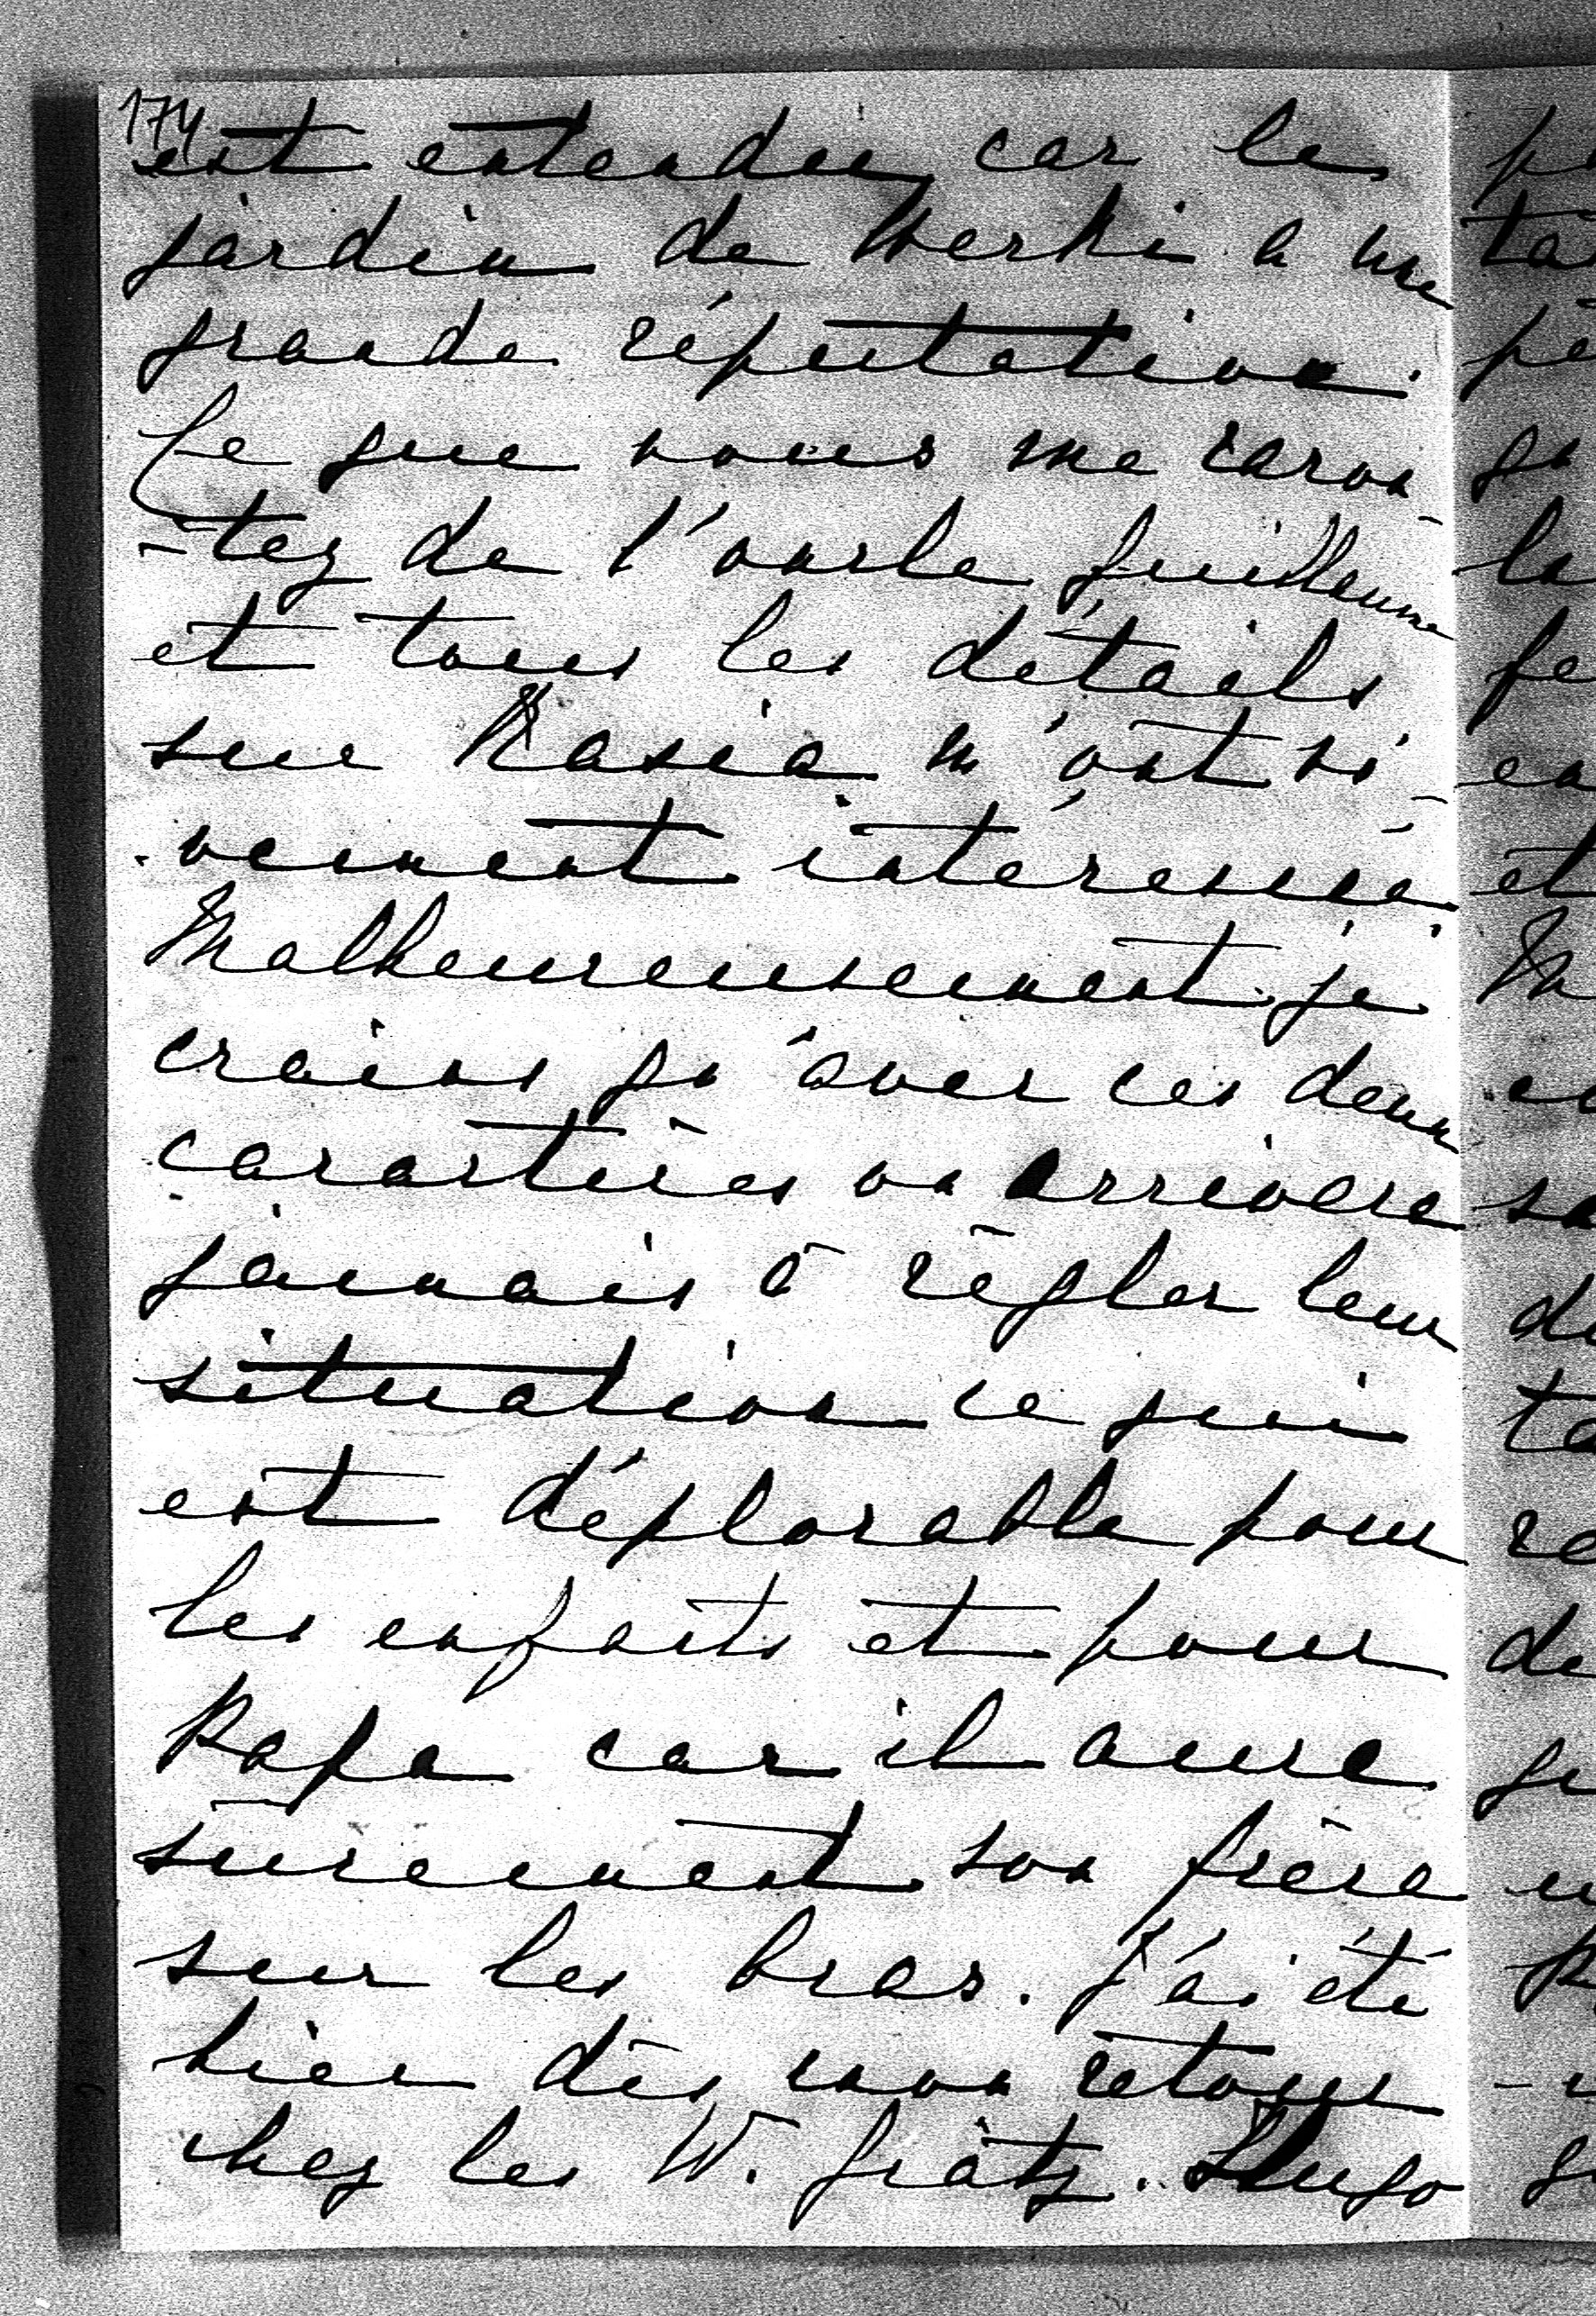 174
est entendue, car le
jardin de Werki a une
grande réputation.
Ce que vous me racon
-tez de l'oncle Guillaume
et tous les détails
sur Kasia m'ont vi-
vement intéressée.
Malheureusement je
crains qu'avec ces deux
caractères on arrivera
jamais à règler leur
situation ce qui
est déplorable pour
les enfants et pour
Papa car il aura
sûrement son frère
sur les bras. J'ai été
hier dès mon retour
chez les W. Grätz. Hugo